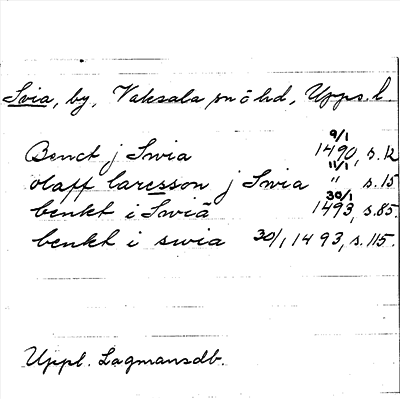 Svia, by, Vaksala sn o hd, Upps. l.
Benct j Swia 9/1 1490, s. 12
olaff laresson j Swia 11/1 " s. 15
benkt i Swiä 30/1 1493, s. 85.
benkt i swia 30/1, 1493, s. 115.
Uppl. Lagmansdb.